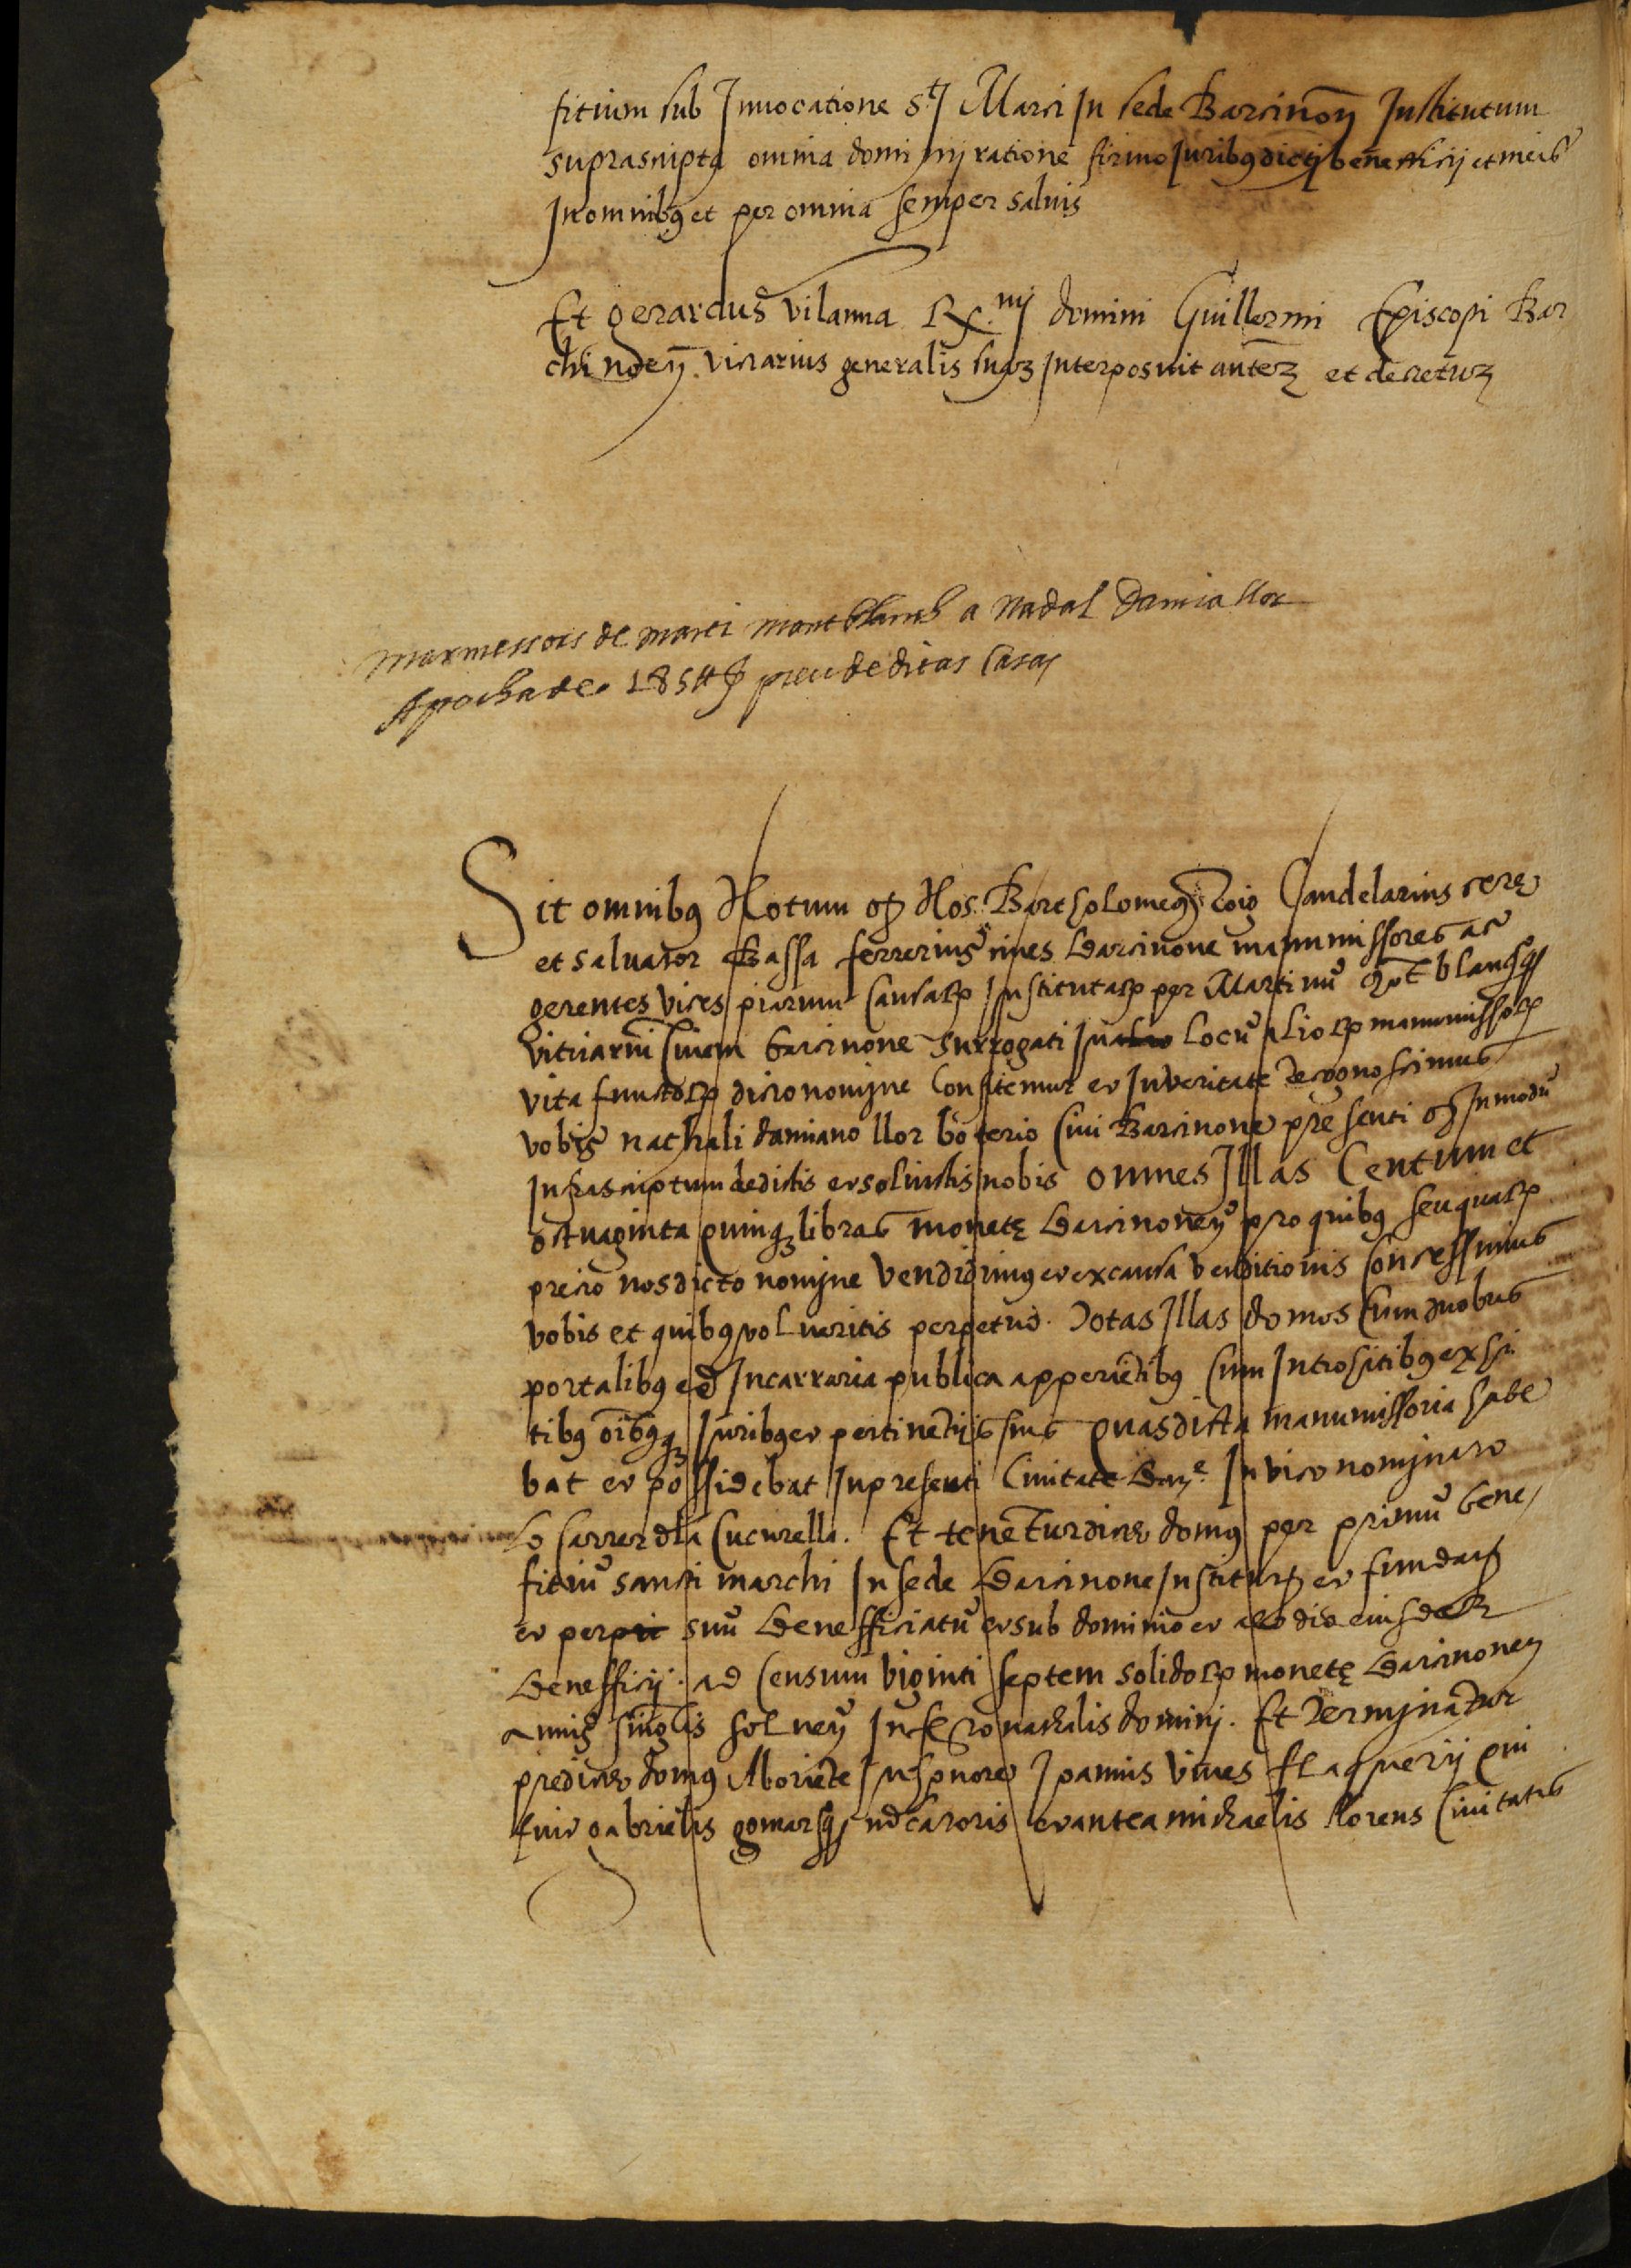 fitium sub Inuocatione S.ti Marci In sede Barcinoñ Institutum
suprascripta omnia dominij ratione firmo Iuribus dicti benefficij et meis
In omnibus et per omnia semper saluis
Et gerardus vilanna Rx.mi domini Guillermi Episcopi Bar
chinoñ. vicarius generalis suaz Interposuit auctez et decretuz
Marmessors de marti montblanch a Nadal Damia llor
Apocha de 185 ll preu de ditas Casas
Sit omnibus Notum q Nos Bartholomeus Candelarius cerę
et saluator Bassa ferrerius ciues barcinone manumissores ac
gerentes vices piarum Causarum Institutarum per Martinu mot blanch
vitriarium Ciuem barcinone surrogati In locu aliorum manumissorum
vita functorum dicto nomine Confitemur et In veritate Recognoscimus
vobis nathali damiano llor boterio Ciui Barcinone presenti q In modu
Infrascriptum dedistis et soluistis nobis omnes Illas Centum et
octuaginta quinqz libras monetę barcinoneñ pro quibus seu quarum
precio nos dicto nomine vendidimus et ex causa venditionis Concessimus
vobis et quibus volueritis perpetuo. Totas Illas domos Cum duobus
portalibus ed In carraria publica apperientibus Cum Introhitibus exhi
tibus oibusqz Iuribus et pertinentijs suis quas dicta manumissoria habe
bat et possidebat In presenti Ciuitate Barne. In vico nominato
lo carrer dla Cucurella. Et tenentur dicte domus per primu bene/
fitiu sancti marchi In sede barcinone Institut et fundat
et per suu benefficiatu et sub dominio et alodio eiusdem
benefficij. ad Censum viginti septem solidorum monetę barcinoneñ
annis singlis solueñ In festo nathalis domini. Et Terminantur
predicte domus Aboriente In honore Ioannis viues flaquerij qui
fuit gabrielis gomar mercatoris et antea michaelis llorens Ciuitatis